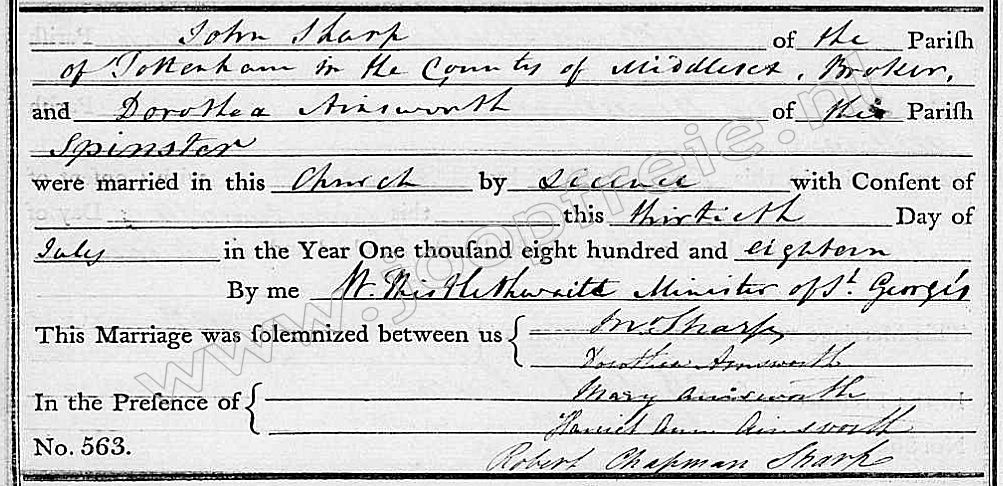 John Sharp of the Pariſh
of Tottenham in the County of Middlesex, Broker,
and Dorothea Ainsworth of this Pariſh
Spinster
were married in this Church by Licence with Conſent of
this thirtieth Day of
July in the Year One thouſand eight hundred and eighteen
By me W. Thistlethwaite Minister of St. George's
This Marriage was ſolemnized between us { Jno. Sharp
Dorothea Ainsworth
In the Preſence of { Mary Ainsworth
Harriet Ann Ainsworth
No. 563.
Robert Chapman Sharp
www.joopfreie.nl